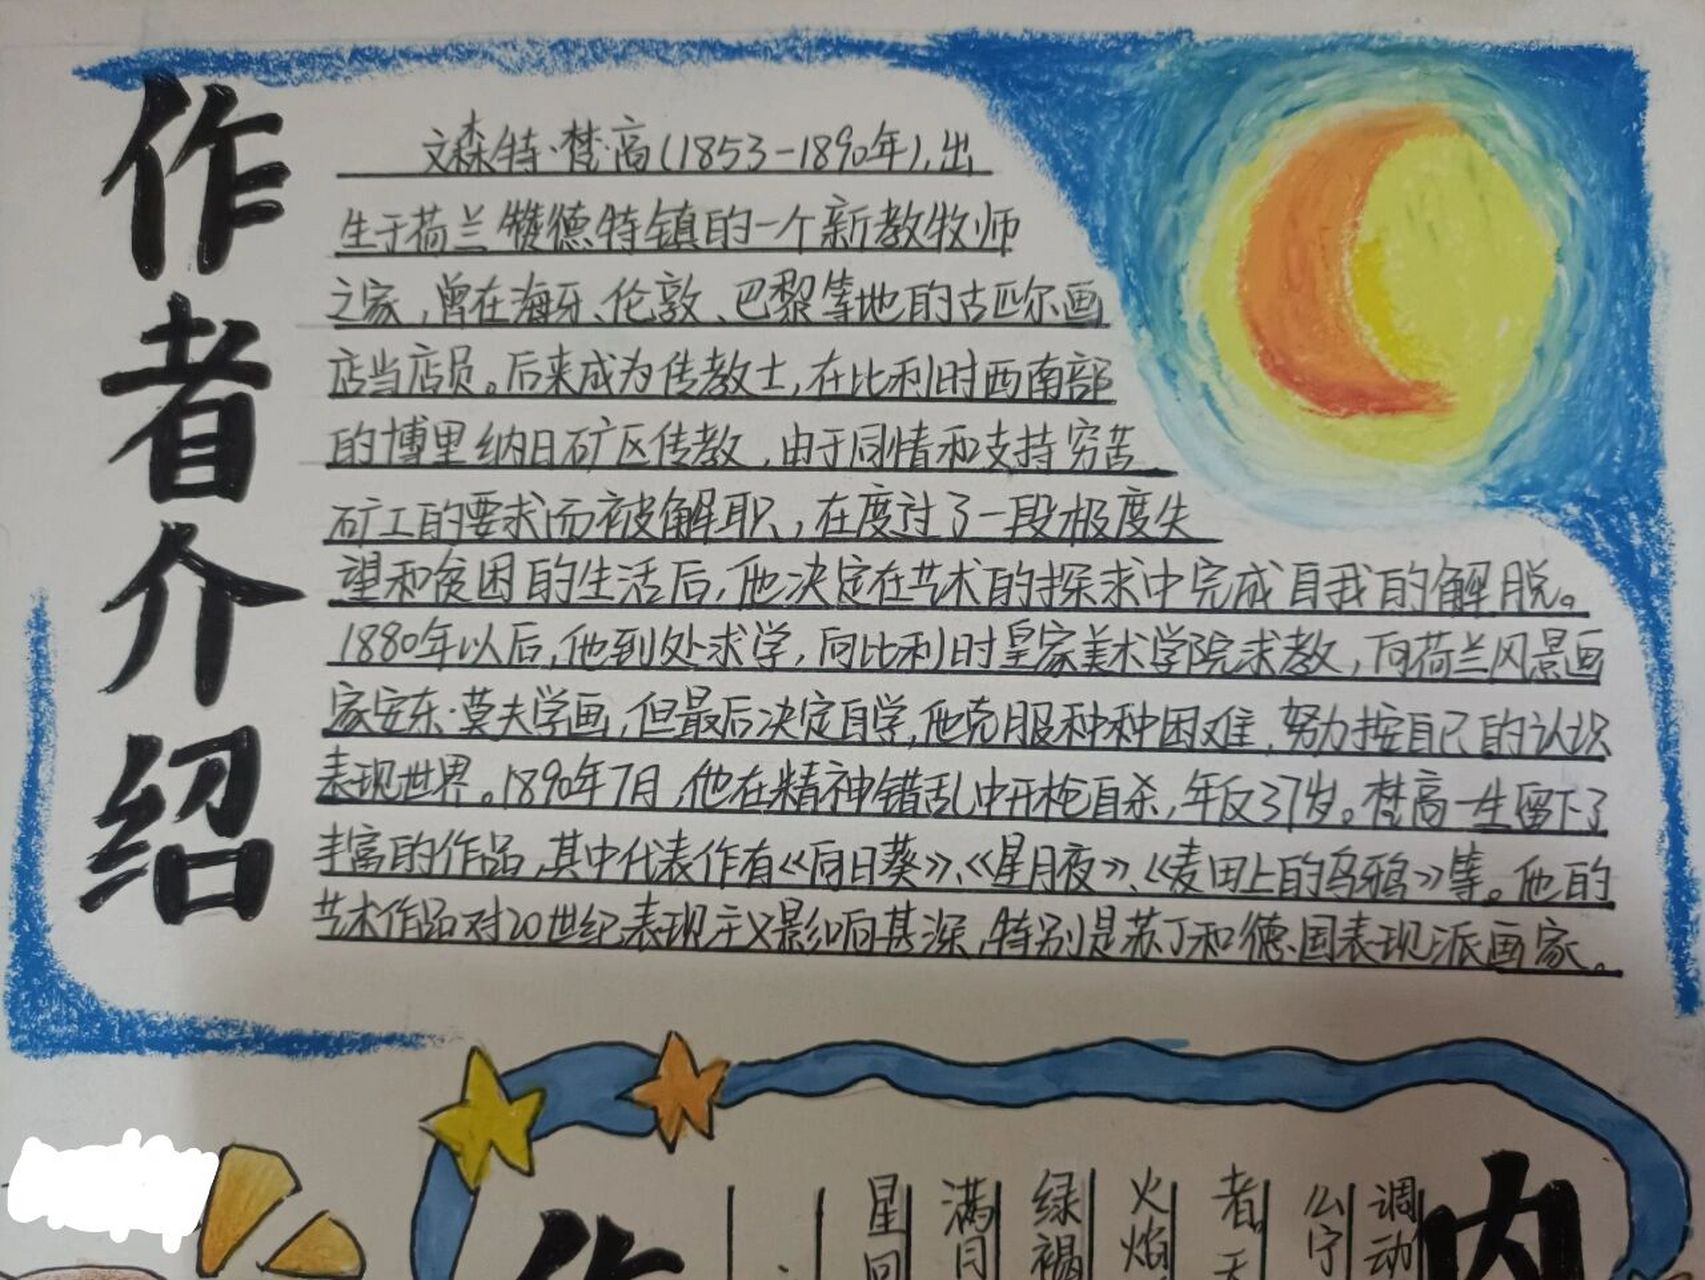 作者介绍
文森特·梵·高(1853-1890年),出
生于荷兰赞德特镇的一个新教牧师
之家,曾在海牙、伦敦、巴黎等地的古匹尔画
店当店员。后来成为传教士,在比利时西南部
的博里纳日矿区传教,由于同情和支持穷苦
矿工的要求而被解职,在度过了一段极度失
望和贫困的生活后,他决定在艺术的探求中完成自我的解脱。
1880年以后,他到处求学,向比利时皇家美术学院求教,向荷兰风景画
家安东·莫夫学画,但最后决定自学,他克服种种困难,努力按自己的认识
表现世界。1890年7月,他在精神错乱中开枪自杀,年仅37岁。梵高一生留下了
丰富的作品,其中代表作有《向日葵》、《星月夜》、《麦田上的乌鸦》等。他的
艺术作品对20世纪表现主义影响甚深,特别是苏丁和德国表现派画家。
内
调动
者
火焰
绿褐
满月
星回
作